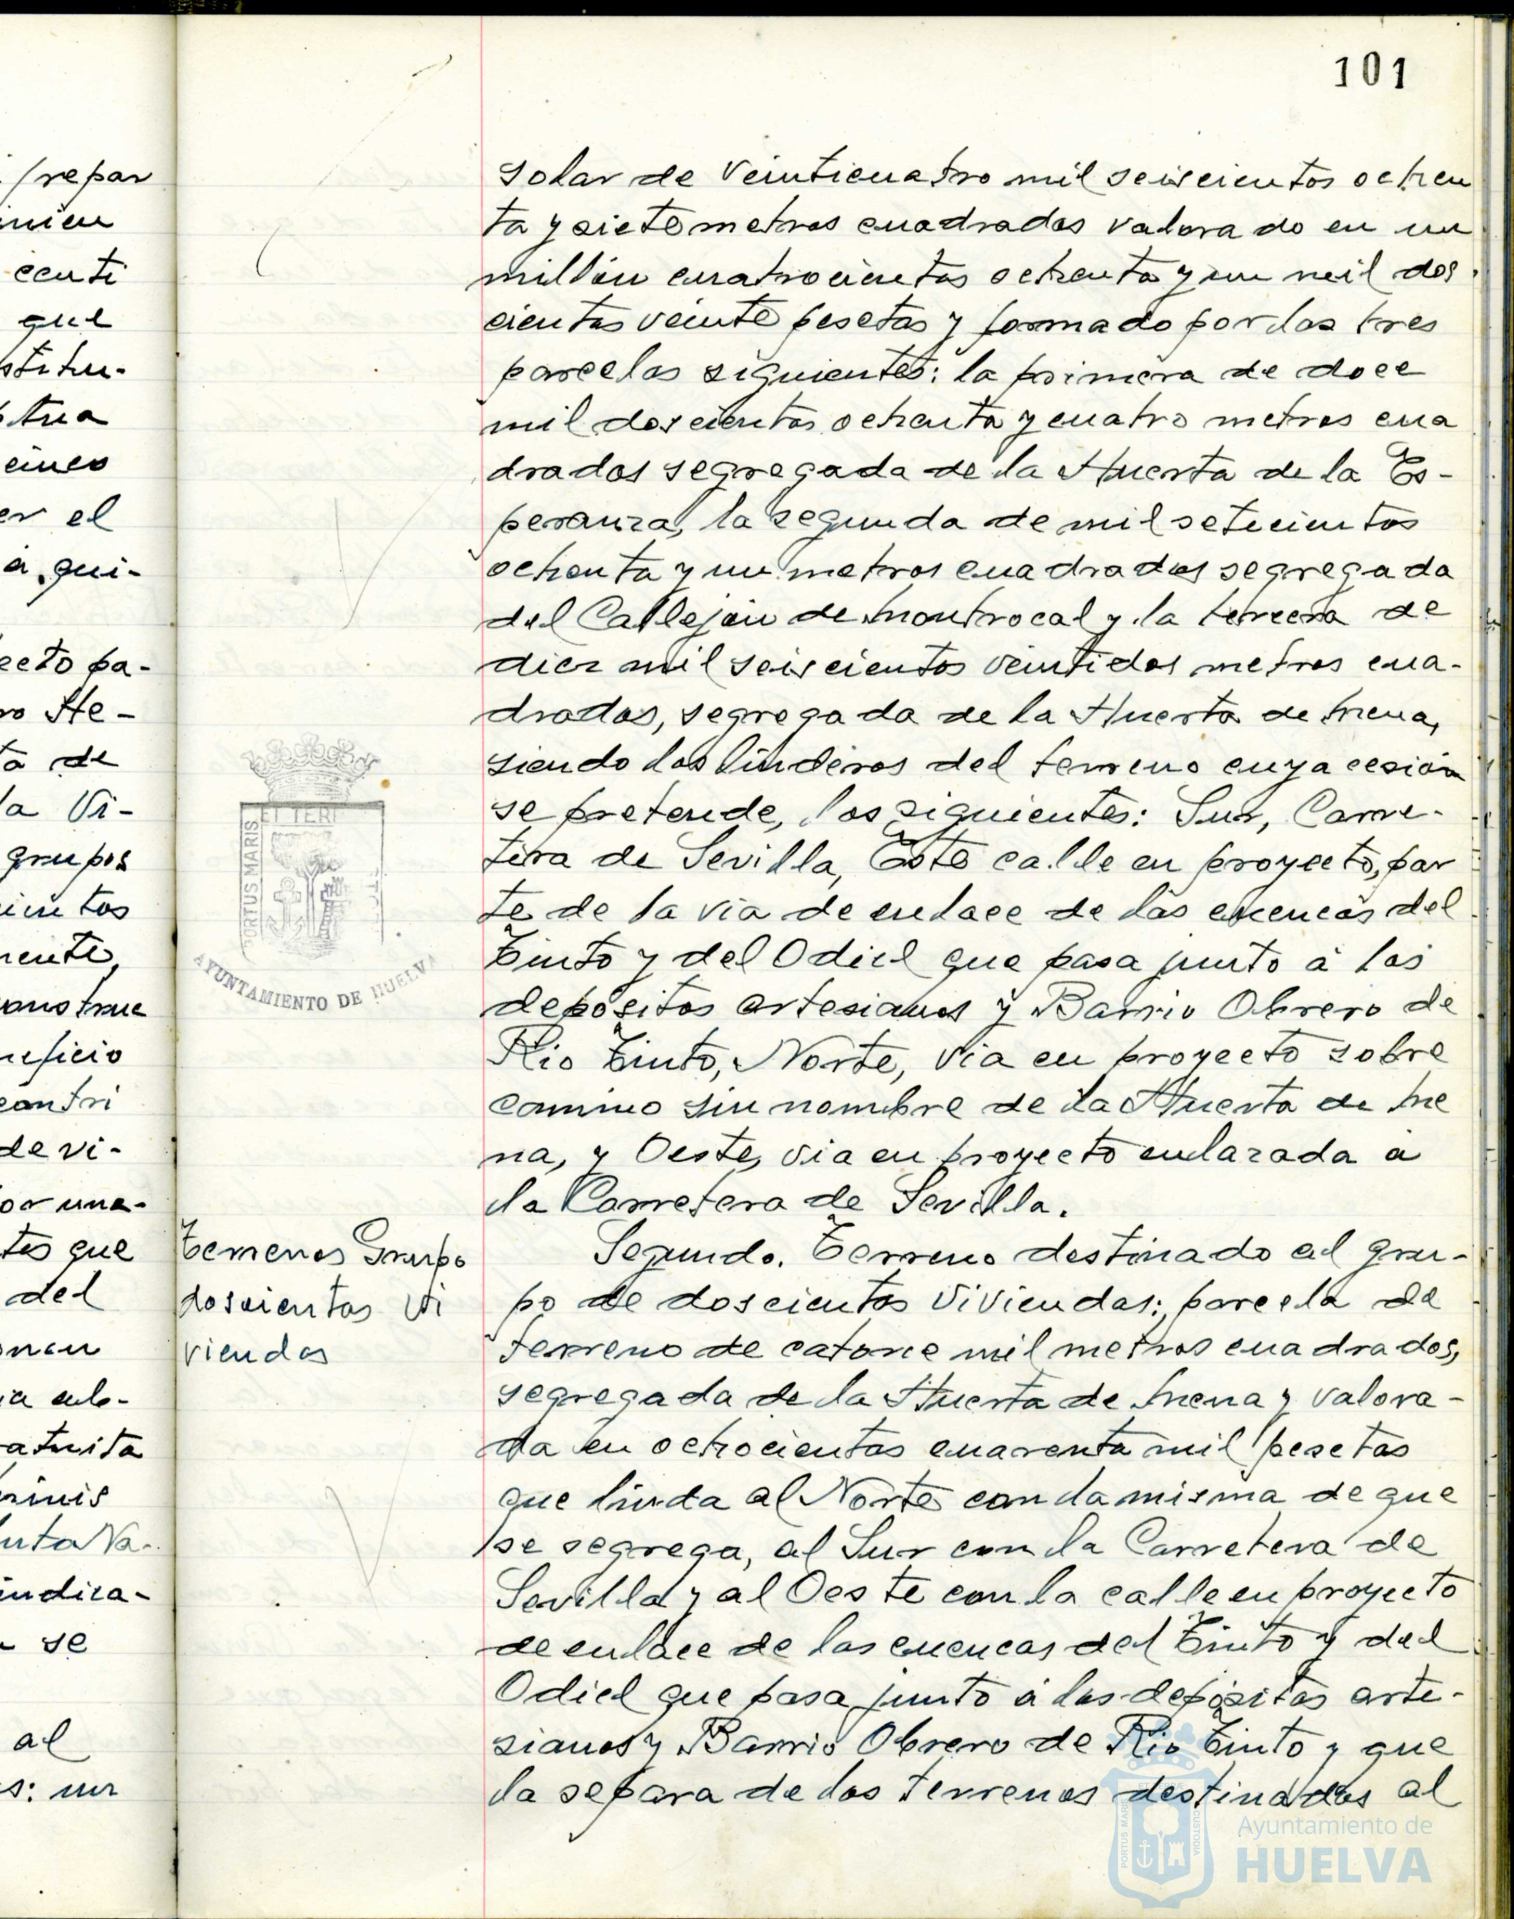 101
/repar
ccenti
que
stitu-
cinco
er el
a, qui-
ecto pa-
ro He-
ta de
la Vi-
grupos
cientos
mente,
construc
neficio
contri
de vi-
por una-
tes que
del
ratuita
inuta Na-
indica-
se
al
s: un
solar de veinticuatro mil seiscientos ochen
ta y siete metros cuadrados valorado en un
millón cuatrocientas ochenta y un mil dos
cientas veinte pesetas y formado por las tres
parcelas siguientes: la primera de doce
mil doscientos ochenta y cuatro metros cua
drados segregada de la Huerta de la Es-
peranza, la segunda de mil setecientos
ochenta y un metros cuadrados segregada
del Callejón de Montrocal y la tercera de
diez mil seiscientos veintidos metros cua-
drados, segregada de la Huerta de Mena,
siendo los linderos del terreno cuya cesión
se pretende, los siguientes: Sur, Carre-
tera de Sevilla, Este calle en proyecto, par
te de la via de enlace de las cuencas del
Tinto y del Odiel que pasa junto á los
depositos artesianos y Barrio Obrero de
Rio Tinto, Norte, via en proyecto sobre
camino sin nombre de la Huerta de Me
na, y Oeste, via en proyecto enlazada a
la Carretera de Sevilla.
Terrenos Grupo
doscientas Vi
viendas
Segundo. Terreno destinado al gru-
po de doscientas viviendas:, parcela de
terreno de catorce mil metros cuadrados,
segregada de la Huerta de Mena y valora-
da en ochocientas cuarenta mil pesetas
que linda al Norte con la misma de que
se segrega, al Sur con la Carretera de
Sevilla y al Oeste con la calle en proyecto
de enlace de las cuencas del Tinto y del
Odiel que pasa junto á los depósitos arte-
sianos y Barrio Obrero de Rio Tinto y que
la separa de los terrenos destinados al
ET TERR
PORTUS MARIS
AYUNTAMIENTO DE HUELVA
PORTUS MARIS
CUSTODIA
Ayuntamiento de
HUELVA